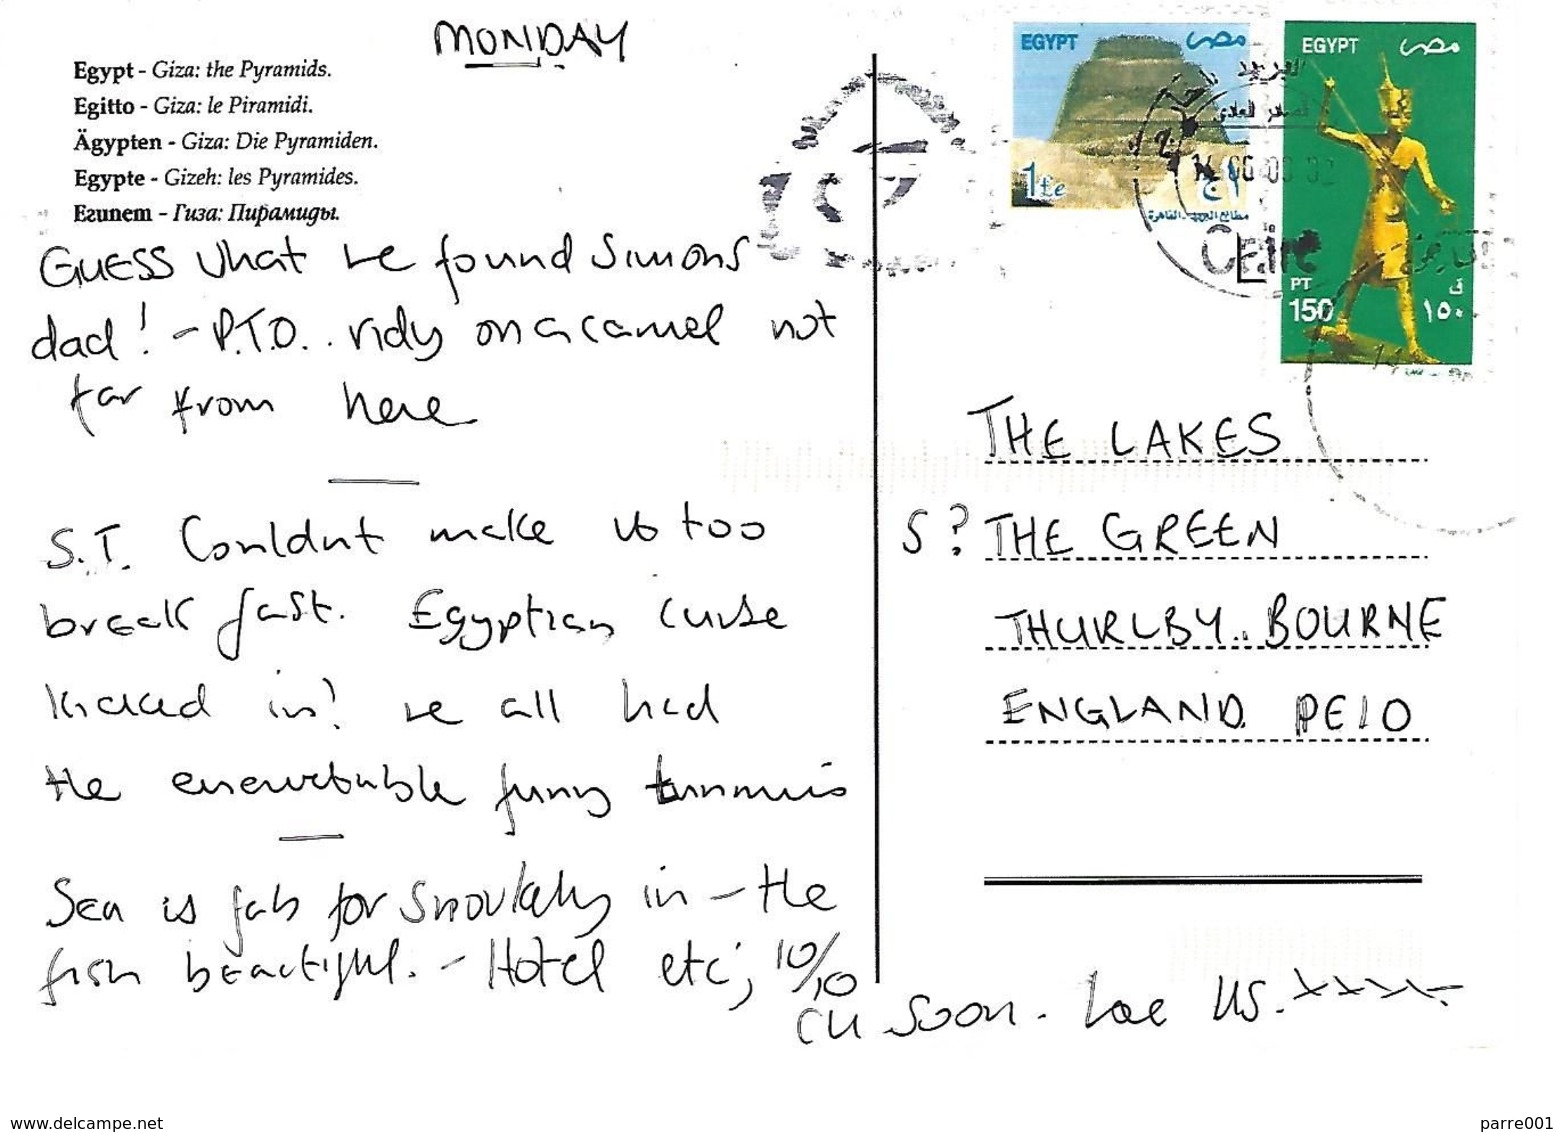 MONDAY
Egypt - Giza: the Pyramids.
Egitto - Giza: le Piramidi.
Ägypten - Giza: Die Pyramiden.
Egypte - Gizeh: les Pyramides.
Египет - Гиза: Пирамиды.
GUESS what we found Simons
dad! - P.T.O... ridy on a camel not
far from here
S.T. Couldnt make us too
break fast. Egyptian curse
kicked in! we all had
the enevitable funny tummis
Sea is fab for Snorkely in - the
fish beautiful. - Hotel etc; 10/10
CU Soon. Love US. xxxx.
EGYPT مصر
1 £e ١ ج
مطابع البريد - القاهرة
EGYPT مصر
PT 150 ق ١٥٠
Cairo
THE LAKES
S? THE GREEN
THURLBY.. BOURNE
ENGLAND. PE10
www.delcampe.net
parre001